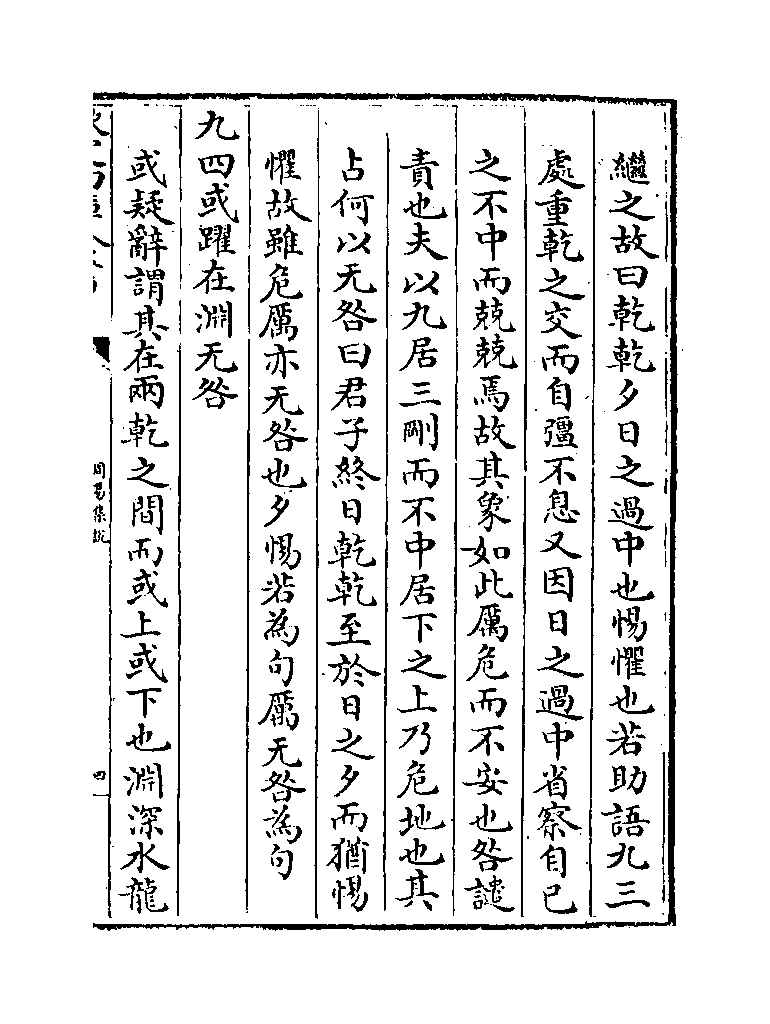 繼之故曰乾乾夕日之過中也惕懼也若助語九三
處重乾之交而自彊不息又因日之過中省察自已
之不中而兢兢焉故其象如此厲危而不安也咎譴
責也夫以九居三剛而不中居下之上乃危地也其
占何以无咎曰君子終日乾乾至於日之夕而猶惕
懼故雖危厲亦无咎也夕惕若為句厲无咎為句
九四或躍在淵无咎
或疑辭謂其在兩乾之間而或上或下也淵深水龍
周易集說
四